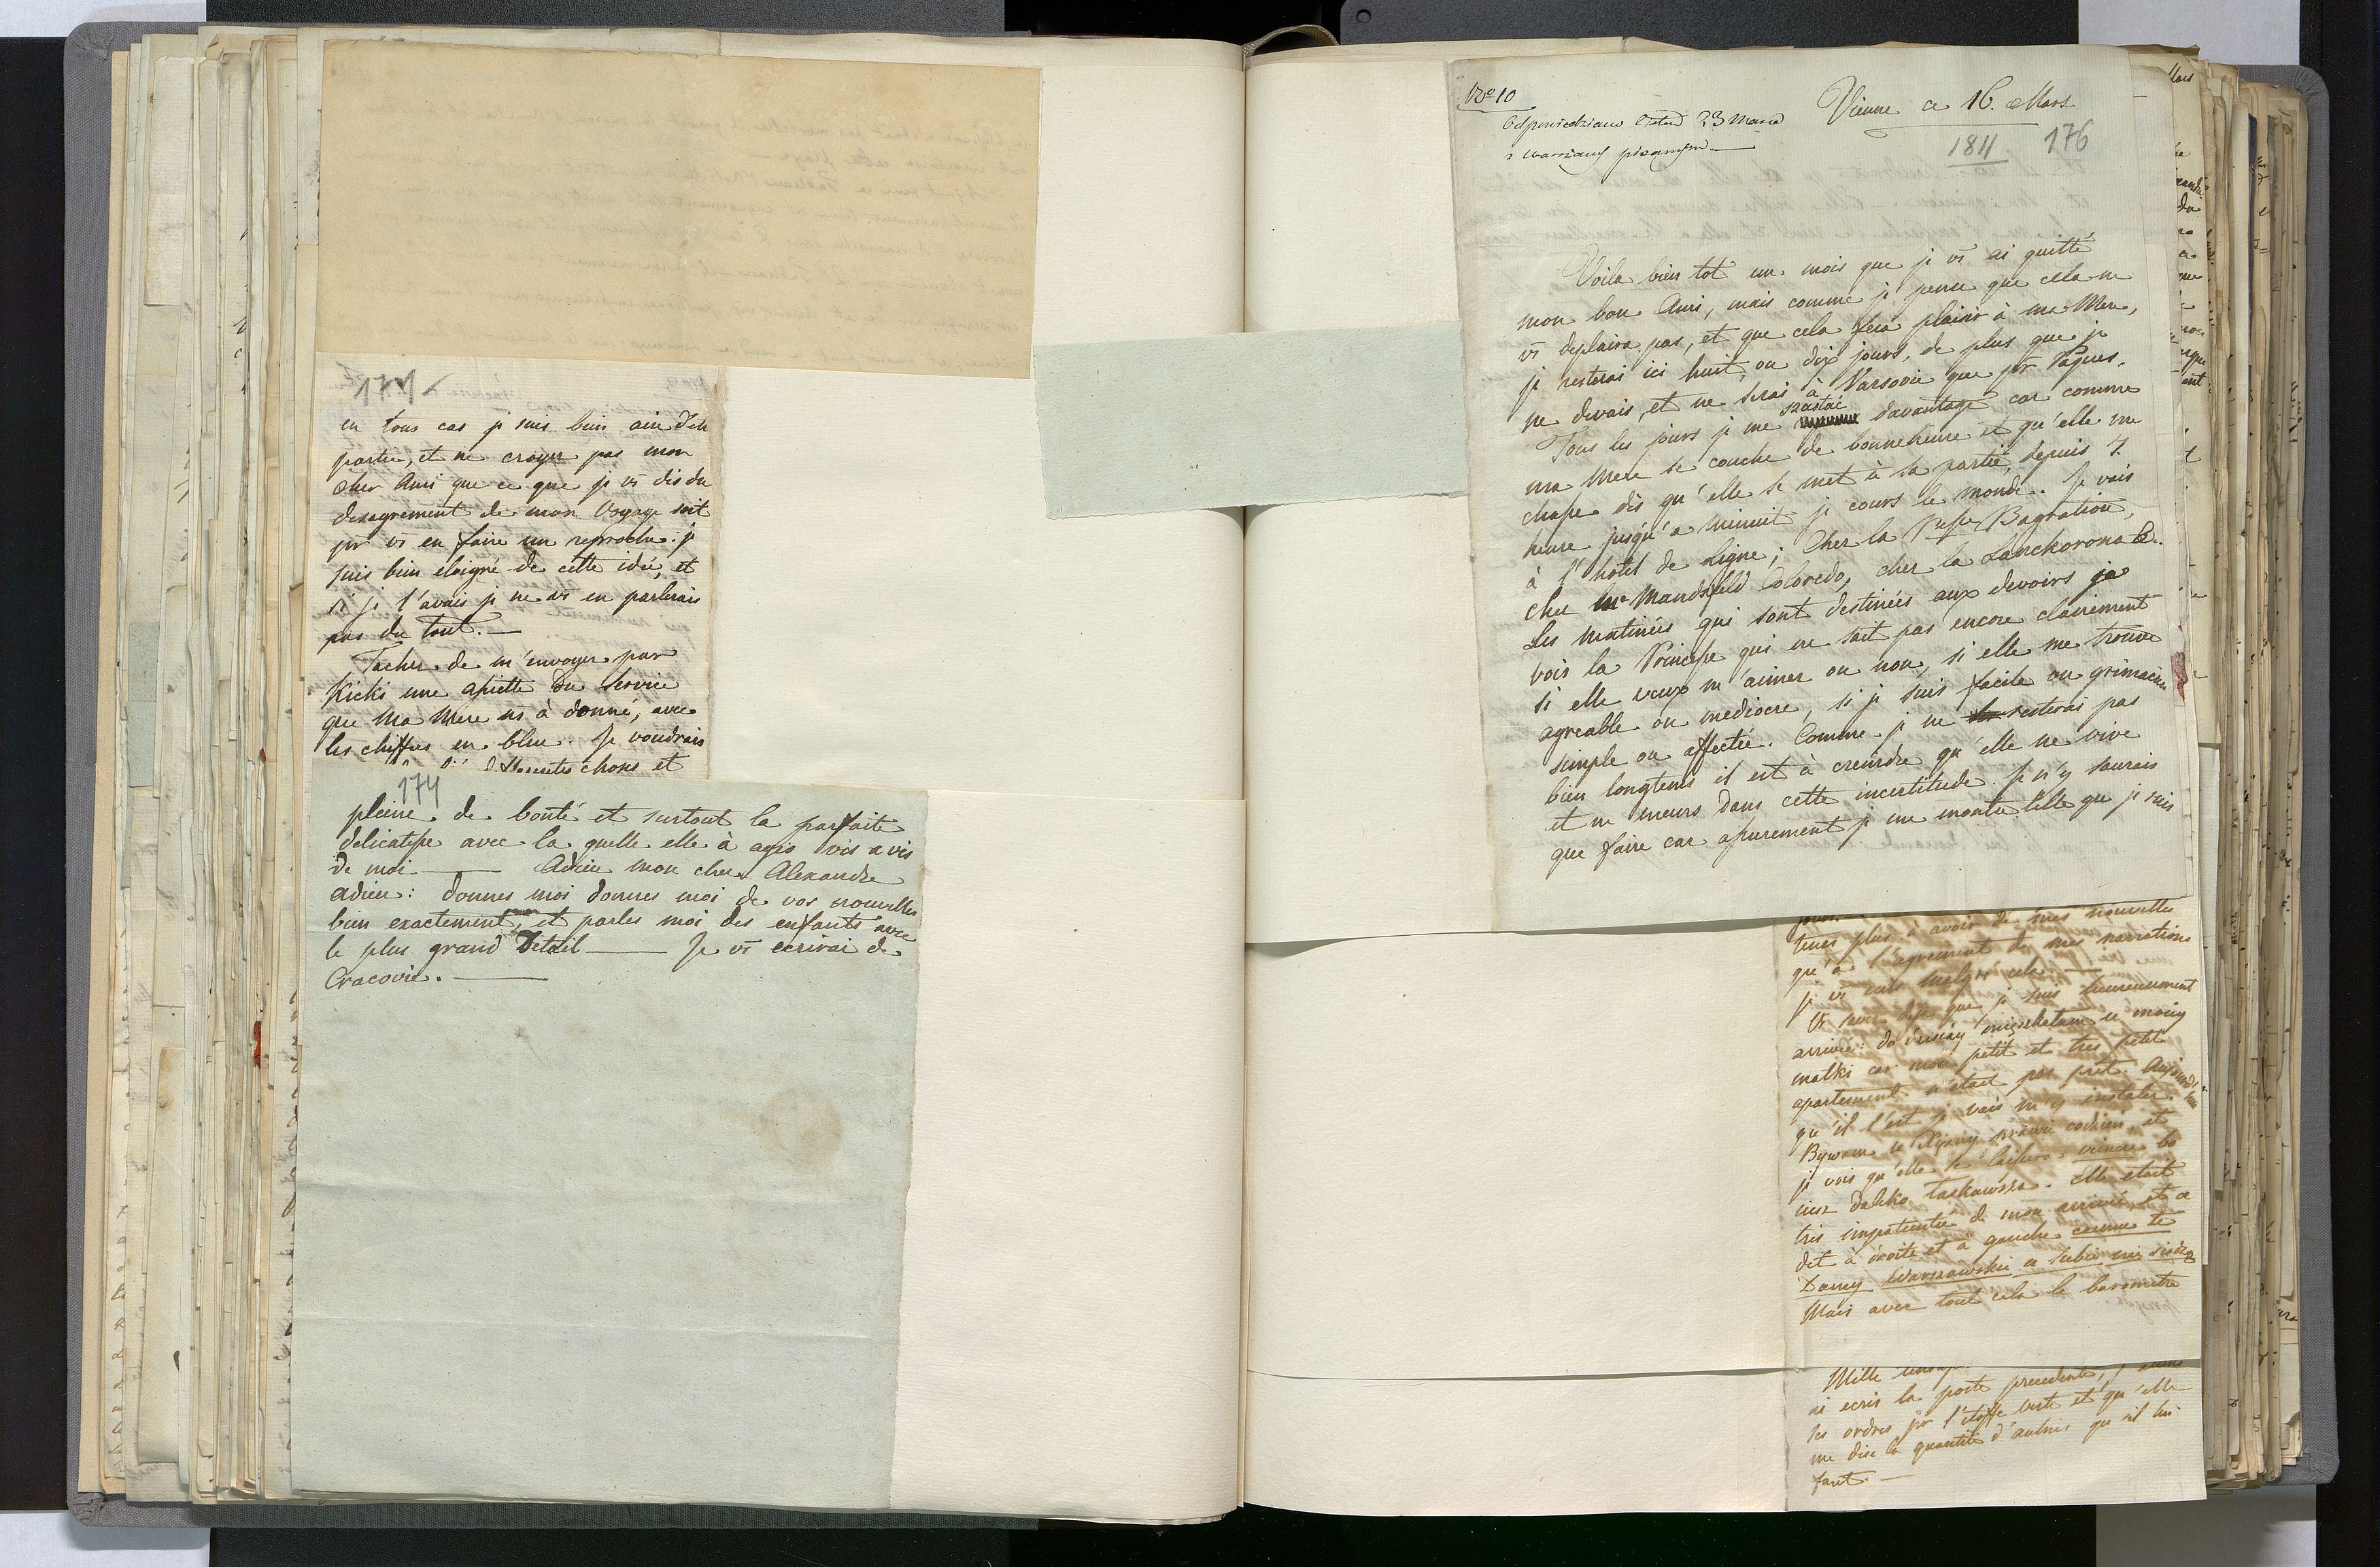 171
en tous cas je suis bien aise d'etre
partie, et ne croyez pas mon
cher Ami que ce que je vs dis du
desagrement de mon Voyage soit
pr vs en faire un reproche: je
suis bien eloigné de cette idée, et
si je l'avais je ne vs en parlerais
pas du tout. —
Tacher de m'envoyer par
Kicki une assiette du Service
que ma Mere vs à donné, avec
les chiffres en bleu. Je voudrais
choses et
174
pleine de bonté et surtout la parfaite
delicatesse avec la quelle elle à agis vis a vis
de moi — Adieu mon cher Alexandre
adieu: donnes moi donnes moi de vos nouvelles
bien exactement, et parles moi des enfants avec
le plus grand Détail — Je vs ecrirai de
Cracovie. —
No 10
Odpowiedziano 23 Marca
z Warszawy pisanym. —
Vienne ce 16. Mars
1811 176
Voila bien tot un mois que je vs ai quitté
mon bon Ami, mais comme je pense que cela ne
vs deplaira pas, et que cela fera plaisir à ma Mere,
je resterai ici huit, ou dix jours, de plus que je
ne devais, et ne serai à Varsovie que pr Paques.
Tous les jours je me szastać davantage car comme
ma Mere se couche de bonne heure et qu'elle me
chasse dès qu'elle se met à sa partie, depuis 7.
heure jusqu'a minuit je cours le monde. Je vais
à l'hotel de Ligne; Chez la Psse Bagration,
chez Me Mandsfeld Coloredo, chez la Lanckorona &.
Les matinées qui sont destinées aux devoirs je
vois la Princesse qui ne sait pas encore clairement
si elle veux m'aimer ou non, si elle me trouve
agreable ou mediocre, si je suis facile ou grimaciere
simple ou affectée. Comme je ne resterai pas
bien longtems il est à creindre qu'elle ne vive
et ne meurs dans cette incertitude. Je n'y saurais
que faire car assurement je me montre telle que je suis
tenes plus à avoir de mes nouvelles
qu'à l'agrement de mes narrations
je vs malgré cela. —
Vs saves deja que je suis heureusement
arrivée: do dzisiay mieszkałam u moiey
matki car mon petit et tres petit
apartement n'était pas pret. Aujourd'hui
qu'il l'est je vais m'y instaler.
Bywam u Xiężny prawie codzien, et
je vois qu'elle se laissera vaincre bo
iusz daleko łaskawsza. Elle etait
tres impatientée de mon arrivée, et a
dit à droite et à gauche comme te
Damy Warszawskie u siebie nie siedzą
Mais avec tout cela le barometre
Mille
ai ecris la poste precedente,
ses ordres pr l'étoffe verte et qu'elle
me dise la quantité d'aulnes qu'il lui
faut. —